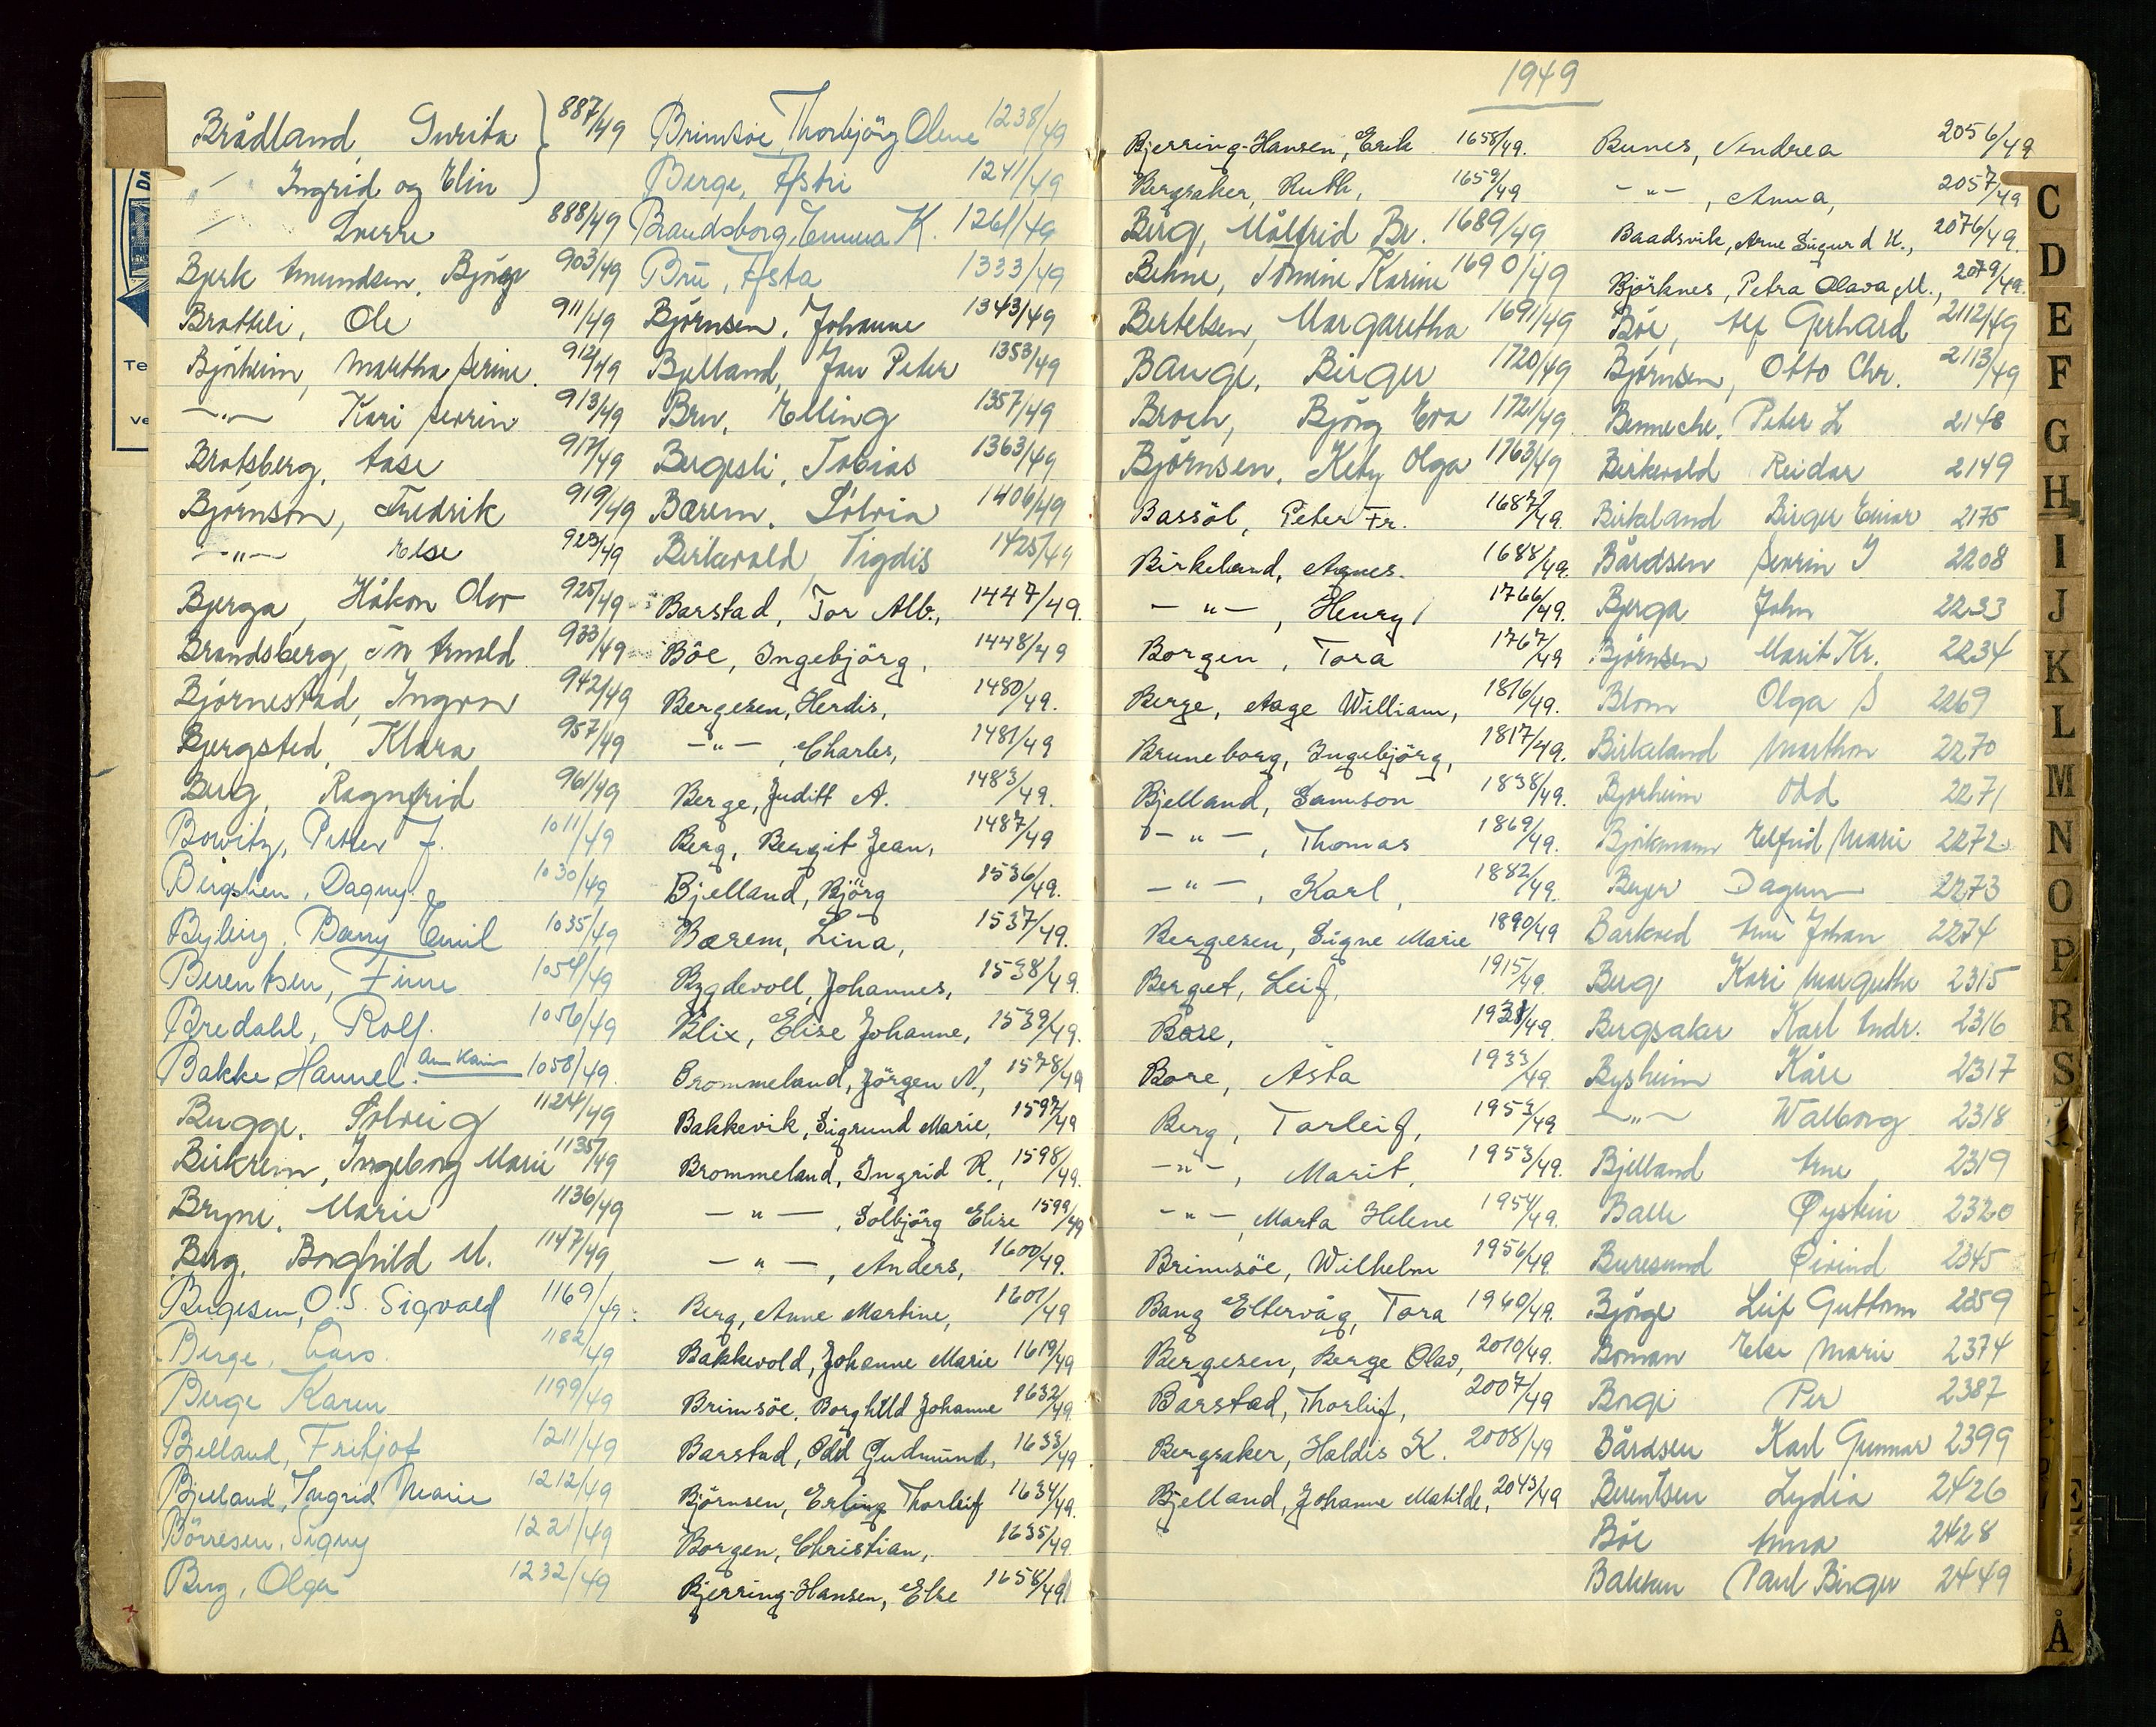 Brådland, Gurita } 887/49
-"- Ingrid og Elin
-"- Sverre 888/49
Bjerk Amundsen, Bjørg 903/49
Brattli, Ole 911/49
Bjórheim, Martha Serine 912/49
-"- Kari Serrin 913/49
Bratsberg, Aase 917/49
Bjørnson, Fredrik 919/49
-"- Else 923/49
Bjerga, Håkon Olav 925/49
Brandsberg, Arnold 933/49
Bjørnestad, Ingvar 942/49
Bjergsted, Klara 957/49
Berg, Ragnfrid 961/49
Borvitz, Petter J. 1011/49
Dagny 1030/49
Byberg, Emil 1035/49
Berentsen, Finn 1054/49
Bredahl, Rolf. 1056/49
Bakke Hannel. Ann Karin 1058/49.
Bugge, Solveig 1124/49
Birkrem, Ingeborg Marie 1135/49
Bryne, Marie 1136/49
Berg, Borghild M. 1147/49
Bergesen, O.S. Sigvald 1169/49
Berge, Lars 1182/49
Berge Karen 1199/49
Bjelland, Fritjof 1211/49
Bjelland, Ingrid Marie 1212/49
Börresen, Signy 1221/49
Berg, Olga 1232/49
Brimsöe, Thorbjörg Olene 1238/49
Berge, Astri 1241/49
Brandsborg, Emma K. 1261/49
Bru, Asta 1333/49
Bjørnsen, Johanne 1343/49
Bjelland, Jan Peter 1353/49
Bru, Elling 1357/49
Bergesli, Tobias 1363/49
Bærem, Sølvia 1406/49
Birkevold, Vigdis 1425/49
Barstad, Tor Alb., 1447/49.
Böe, Ingebjörg, 1448/49
Bergesen, Herdis, 1480/49.
-"-, Charles, 1481/49
Berge, Juditt A. 1483/49.
Berg, Bergit Jean, 1487/49
Bjelland, Björg 1536/49.
Bærem, Lina, 1537/49.
Bygdevoll, Johannes, 1538/49.
Blix, Elise Johanne, 1539/49.
Brommeland, Jörgen N., 1578/49
Bakkevik, Sigrund Marie, 1597/49
Brommeland, Ingrid R., 1598/49.
-"-, Solbjörg Elise 1599/49
-"-, Anders, 1600/49.
Berg, Anne Martine, 1601/49
Bakkevold, Johanne Marie 1619/49
Brimsöe, Borghild Johanne 1632/49.
Barstad, Odd Gudmund, 1633/49
Björnsen, Erling Thorleif 1634/49.
Borgen, Christian, 1635/49.
Bjerring-Hansen, Else 1658/49.
1949
Bjerring-Hansen, Erik 1658/49.
Bergsaker, Ruth, 1659/49
Berg, Målfrid Br. 1689/49
Behne, Tomine Karine 1690/49
Bertelsen, Margaretha 1691/49
Bauge, Birger 1720/49
Broch, Bjørg Eva 1721/49
Bjørnsen, Kety Olga 1763/49
Bassöl, Peter Fr. 1687/49.
Birkeland, Agnes. 1688/49.
-"-, Henry, 1766/49.
Borgen, Tora 1767/49
Berge, Aage William, 1816/49.
Bruneborg, Ingebjörg, 1817/49.
Bjelland, Samson 1838/49.
-"-, Thomas 1869/49.
-"-, Karl, 1882/49.
Bergesen, Signe Marie 1890/49
Berget, Leif, 1915/49.
Bore, 1931/49.
Bore, Åsta 1933/49
Berg, Torleif, 1953/49
-"-, Marit, 1953/49.
-"-, Marta Helene 1954/49.
Brimsöe, Wilhelm 1956/49.
Bang Eltervåg, Tora 1960/49.
Bergesen, Berge Olav, 2010/49.
Barstad, Thorleif, 2007/49
Bergsaker, Haldis K. 2008/49
Bjelland, Johanne Matilde, 2043/49
Bunes, Andrea 2056/49
-"-, Anna, 2057/49
Baadsvik, Arne Sigurd K., 2076/49.
Björknes, Petra Olava M., 2079/49.
Böe, Alf Gerhard 2112/49
Bjørnsen, Otto Chr. 2113/49
Benneche, Peter L 2148
Birkevold Reidar 2149
Birkeland Birger Einar 2175
Bårdsen Serrin J 2208
Bjerga John 2233
Bjørnsen Marit Kr. 2234
Blom Olga S 2269
Birkeland Marthon 2270
Bjorheim Odd 2271
Björkmann Elfrid Marie 2272
Beyer Dagun 2273
Barkved Arne Johan 2274
Berg Kari Margrethe 2315
Bergsaker Karl Andr. 2316
Bysheim Kåre 2317
-"- Walborg 2318
Bjelland Arne 2319
Balle Øystein 2320
Buresund Eivind 2345
Bjørge Leif Guttorm 2359
Boman Else Marie 2374
Borge Per 2387
Bårdsen Karl Gunnar 2399
Berentsen Lydia 2426
Böe Anna 2428
Bakken Paul Birger 2449
C
D
E
F
G
H
I
J
K
L
M
N
O
P
R
S
Å